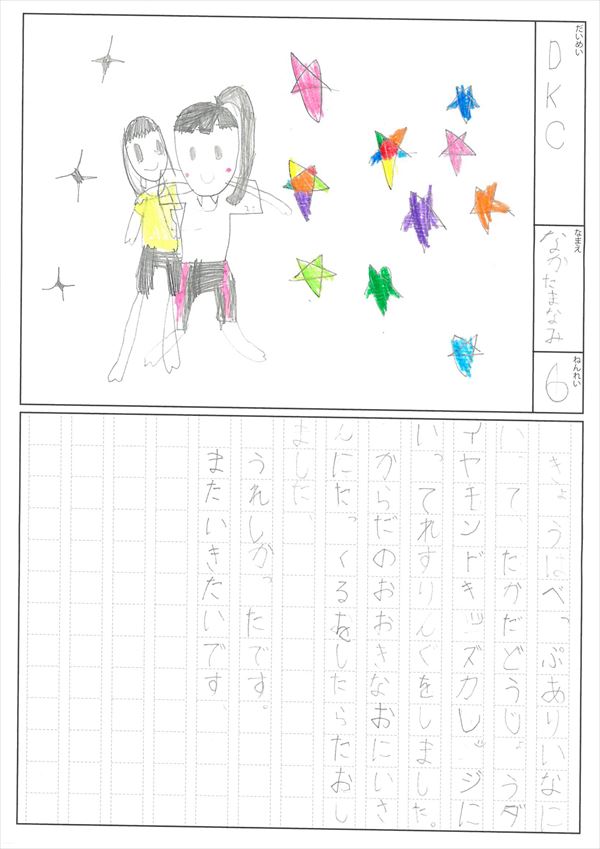 だいめい
DKC
なまえ
なかたまなみ
ねんれい
6
きょうはべっぷありいなに
いって、たかだどうじょうダ
イヤモンドキッズカレッジに
いってれすりんぐをしました。
からだのおおきなおにいさ
んにたっくるをしたらたおし
ました、
うれしかったです。
またいきたいです、